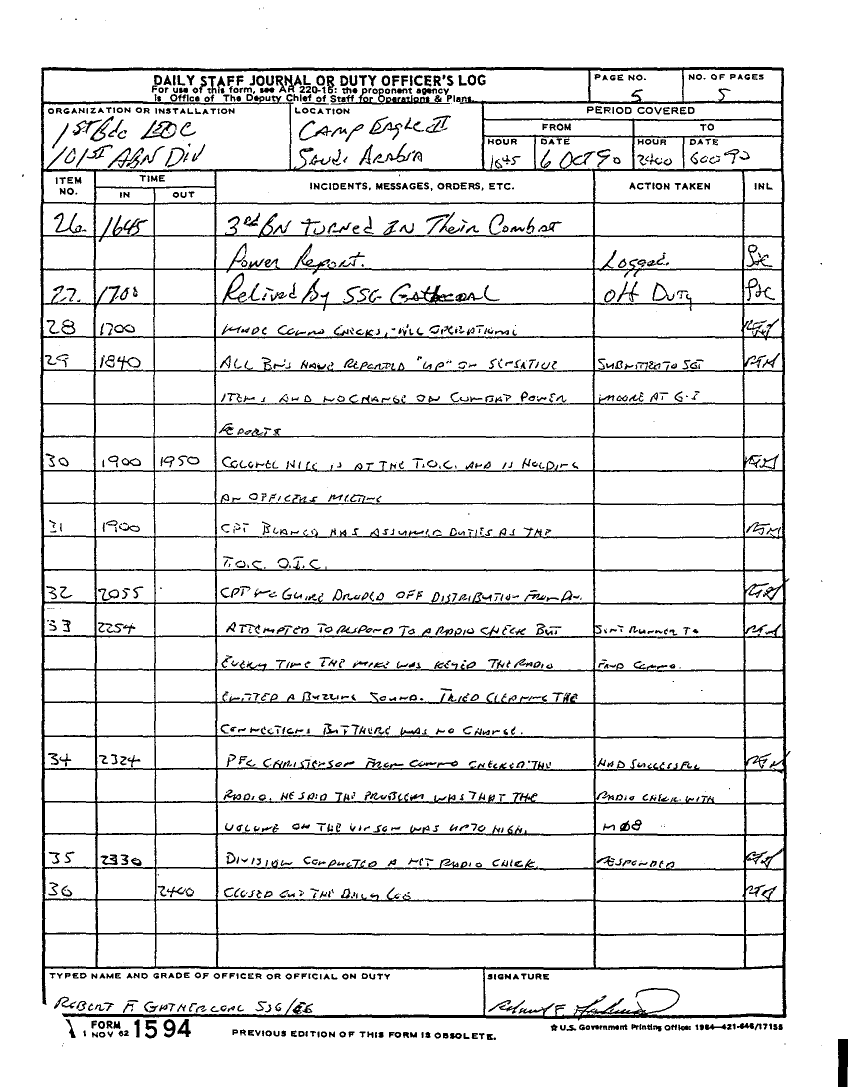 DAILY STAFF JOURNAL OR DUTY OFFICER'S LOG
For use of this form, see AR 220-15: the proponent agency
is Office of The Deputy Chief of Staff for Operations & Plans.
PAGE NO.
5
NO. OF PAGES
5
ORGANIZATION OR INSTALLATION
1st Bde
101st ABN Div
LOCATION
Camp Eagle II
Saudi Arabia
PERIOD COVERED
FROM
TO
HOUR
DATE
HOUR
DATE
1645
6 OCT 90
2400
6 OCT 90
ITEM NO.
TIME
IN
OUT
INCIDENTS, MESSAGES, ORDERS, ETC.
ACTION TAKEN
INL
26 1645 3rd BN turned in Their Combat
Power Report. Logged.
27. 1700 Relived By SSG Gathercoal off Duty
28 1700 MADE COMMO CHECKS, ALL OPERATIONAL
29 1840 ALL BN'S HAVE REPORTED "UP" ON SENSITIVE SUBMITTED TO SGT
ITEMS AND NO CHANGE ON COMBAT POWER MOORE AT G-3
REPORTS
30 1900 1950 COLONEL HILL IS AT THE T.O.C. AND IS HOLDING
AN OFFICERS MEETING
31 1900 CPT BLANCO HAS ASSUMED DUTIES AS THE
T.O.C. O.I.C.
32 2055 CPT McGUIRE DROPED OFF DISTRIBUTION FROM
33 2254 ATTEMPTED TO RESPOND TO A RADIO CHECK BUT SENT RUNNER TO
EVERY TIME THE MIKE WAS KEYED THE RADIO FIND COMMO.
EMITTED A BUZZING SOUND. TRIED CLEANING THE
CONNECTIONS BUT THERE WAS NO CHANGE.
34 2324 PFC CHRISTENSON FROM COMMO CHECKED THE HAD SUCCESSFUL
RADIO. HE SAID THE PROBLEM WAS THAT THE RADIO CHECK WITH
VOLUME ON THE VINSON WAS UP TO HIGH. M08
35 2330 DIVISION CONDUCTED A NET RADIO CHECK RESPONDED
36 2400 CLOSED OUT THE DAILY LOG
TYPED NAME AND GRADE OF OFFICER OR OFFICIAL ON DUTY
ROBERT F GATHERCOAL SSG/E6
SIGNATURE
FORM
1 NOV 62
1594
PREVIOUS EDITION OF THIS FORM IS OBSOLETE.
☆ U.S. Government Printing Office: 1984-421-646/17155